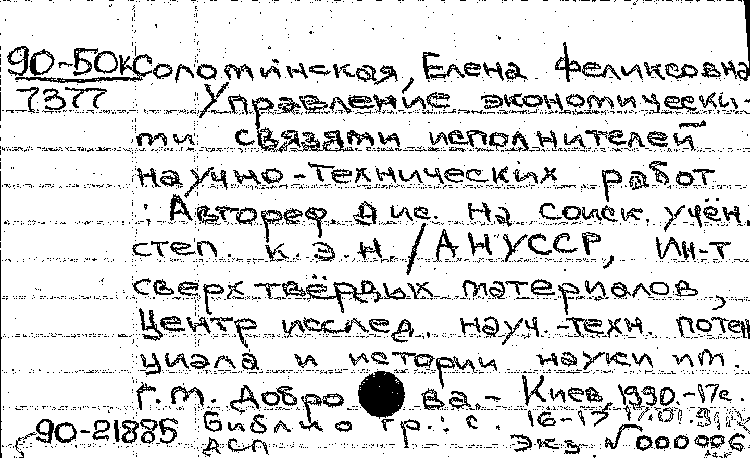 90-БОК Соломинская, Елена Феликсовна
7377 Управление экономически-
ми связями исполнителей
научно-технических работ
: Автореф. дис. на соиск. учён.
степ. к.э.н. / АН УССР, Ин-т
сверхтвёрдых материалов,
Центр исслед. науч.-техн. потен
циала и истории науки им.
Г.М. Добро ва.- Киев, 1990.-17с.
90-21885 Библио гр.: с. 16-17
ДСП экз № 000006